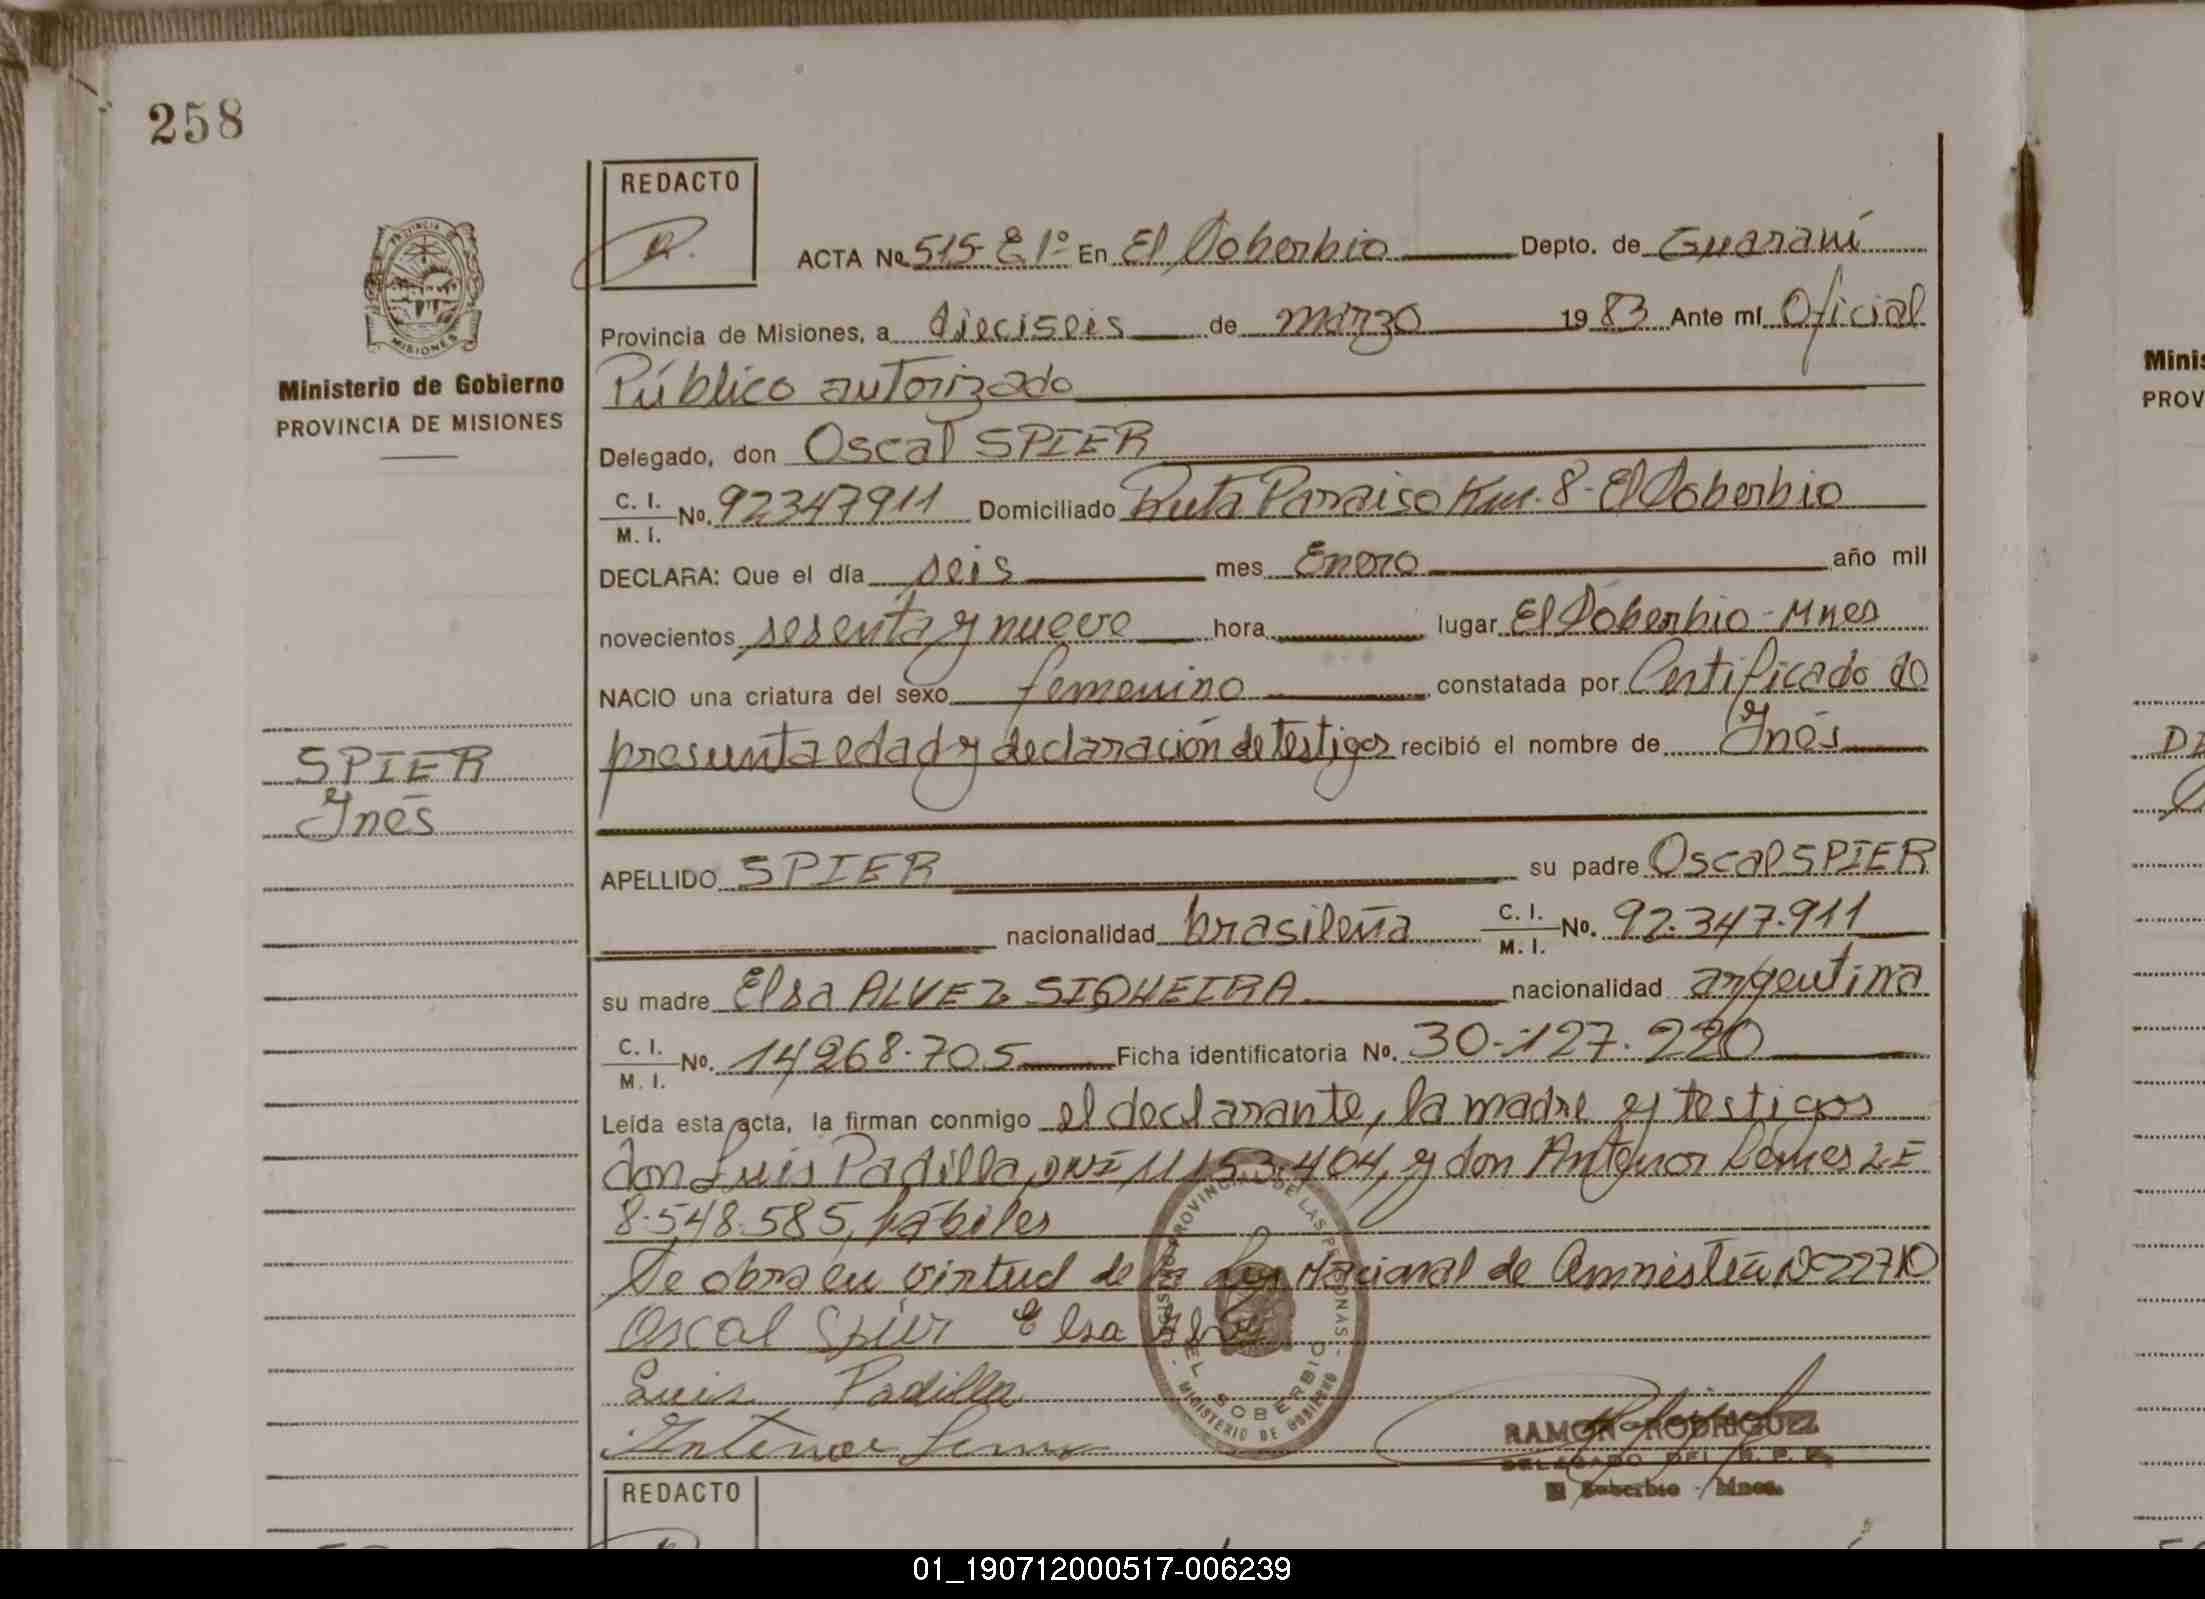 258
REDACTO
ACTA No 515- E 1º En El Soberbio Depto. de Guaraní
Provincia de Misiones, a dieciseis de marzo 1983 Ante mí Oficial
Público autorizado
Delegado, don Oscal SPIER
C. I. / M. I. No. 92347911 Domiciliado Ruta Paraiso Km. 8- El Soberbio
DECLARA: Que el día seis mes Enero año mil
novecientos sesenta y nueve hora lugar El Soberbio - Mnes
NACIO una criatura del sexo femenino constatada por Certificado de
presunta edad y declaración de testigos recibió el nombre de Ynés
APELLIDO SPIER su padre Oscal SPIER
nacionalidad brasileña C. I. / M. I. No. 92.347.911
su madre Elsa ALVEZ SIQUEIRA nacionalidad argentina
C. I. / M. I. No. 14268.705 Ficha identificatoria No. 30-127.220
Leída esta acta, la firman conmigo el declarante, la madre y testigos
don Luis Padilla, DNI 11153.404, y don Antenor Lemes LE
8.548.585, hábiles
Se obra en virtud de la Ley Nacional de Amnistía Nº 22710
Oscal Spier Elsa Alvez
Luis Padilla
Antenor Lemes
REGISTRO PROVINCIAL DE LAS PERSONAS
EL SOBERBIO
MINISTERIO DE GOBIERNO
RAMON RODRIGUEZ
DELEGADO DEL R. P. P.
El Soberbio - Mnes.
PROVINCIA
MISIONES
Ministerio de Gobierno
PROVINCIA DE MISIONES
SPIER
Ynés
REDACTO
Minis
PROV
01_190712000517-006239